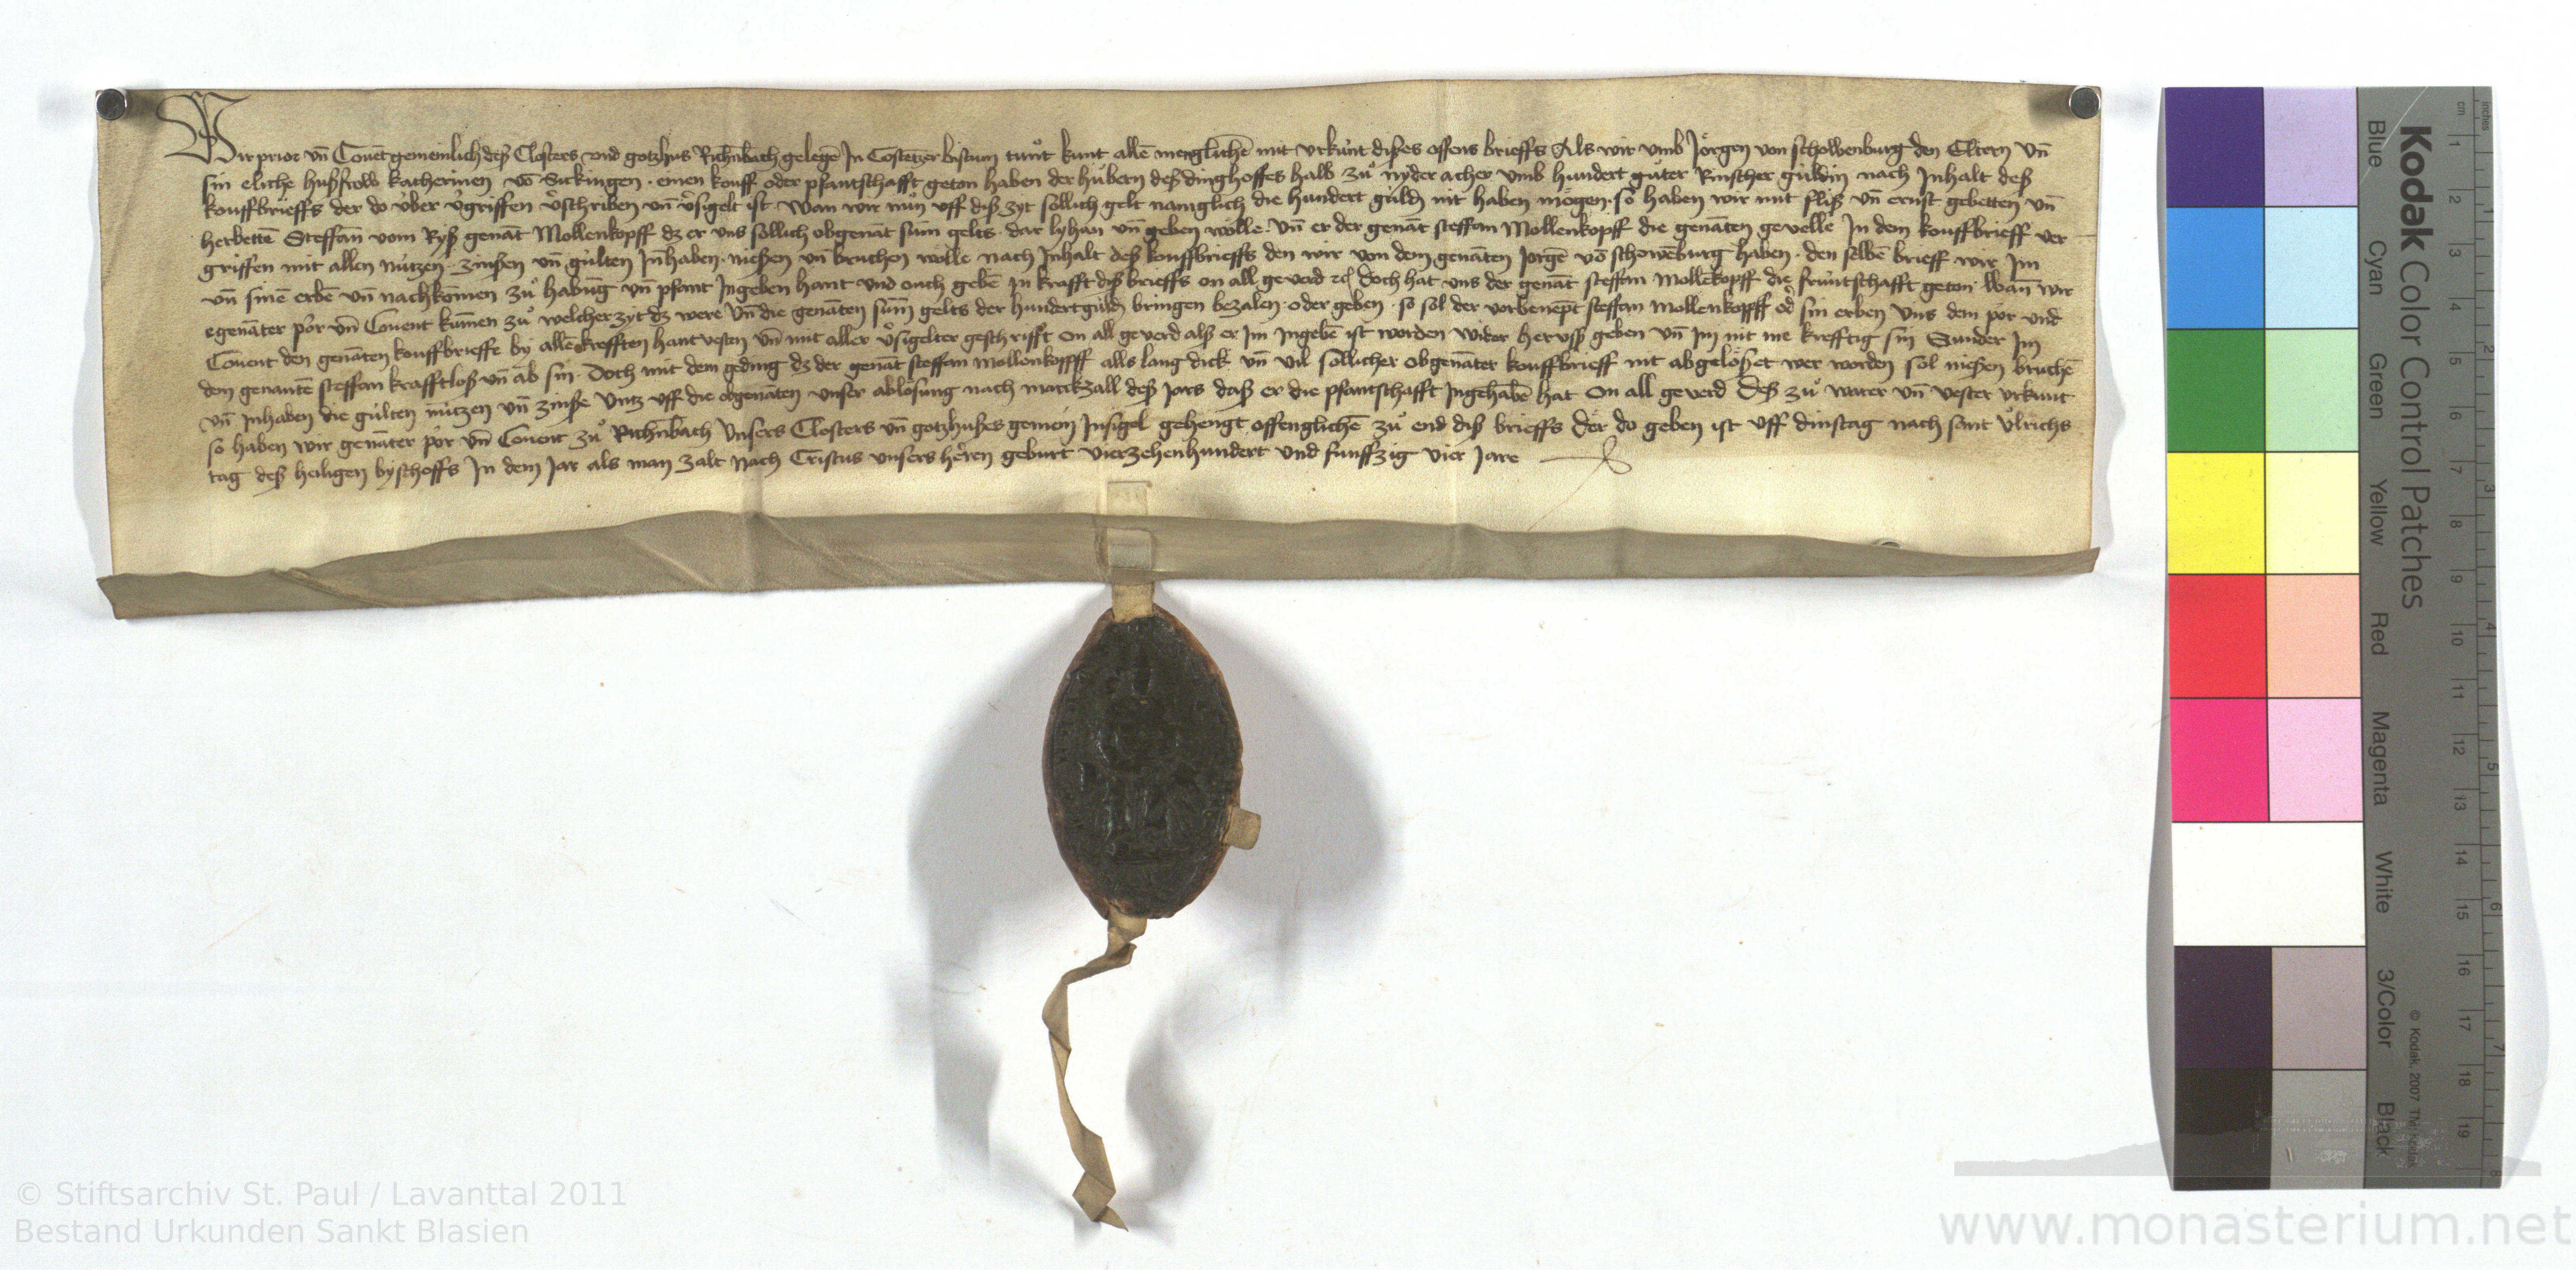 Wir prior vn̄ Couēt gemeinlich deß Closters vnd gotzhus Richn̄bach gelegē Jn Costetzer bistum tuͦnt kunt allē menglichē mit vrkúnt dißes offens brieffs Als wir vmb Jörgen von schowenburg den Eltern vn̄
sin eliche hußfrow katherinen vō Sickingen · einen kouff oder pfantschafft geton haben der huͤbern deß dinghoffes halb zuͦ nyder acher vmb hundert guͤter Rinscher guldin nach Jnhalt deß
kouffbrieffs der do vber v̓griffen v̓schriben vn̄ v̓sigelt ist · Wan wir nun vff diß zyt sollich gelt namglich die hundert guld̄ nit haben mögen · so haben wir mit fliß vn̄ ernst gebetten vn̄
herbettē Steffan̄ vom Ryß genāt Mollenkopff dz er vns sollich obgenāt sūm gelts · dar lyhan vn̄ geben wölle · Vn̄ er der genāt steffan Mollenkopff die genāten gevelle Jn dem kouffbrieff ver
griffen mit allen nutzen · zinsen vn̄ gulten Jnhaben · nießen vn̄ bruchen wölle nach Jnhalt deß kouffbrieffs den wir von dem genāten Jorgē vō schowēburg haben · den selbē brieff wir Jm
vn̄ sinē erbē vn̄ nachkōmen zuͦ habūg vn̄ pfant Jngeben hant vnd ouch gebē Jn krafft diß brieffs on all geverd ꝛc̄ Doch hat vns der genāt steffan Mollēkopff die fruntschafft geton · Wan̄ wir
egenāter p̓or vn̄ Couent kumen zuͦ welcher zyt dz were vn̄ die genāten sum̄ gelts der hundert guld̄ bringen bezalen · oder geben · so sol der vorbenēpt steffan Mollenkopff od̓ sin erben vns dem por vnd
Couent den genāten kouffbrieffe by allē krefften hantvesten vn̄ mit aller v̓sigelter geschrifft on all geverd alß er Jm Jngebē ist worden wider heruß geben vn̄ Jm nit me krefftig sin Sunder Jm
dem genantē steffan krafftloß vn̄ ab sin · Doch mit dem geding dz der genāt steffan Mollenkopff alls lang dick vn̄ vil sollicher obgenāter kouffbrieff nit abgelößet wer worden sol nießen bruchē
vn̄ Jnhaben die gulten nutzen vn̄ zinße vntz vff die obgenāten vnser ablösung nach marckzall deß Jars daß er die pfantschafft Jngehabē hat on all geverd Deß zuͦ warer vn̄ vester vrkunt
so haben wir genāter p̓or vn̄ Couent zuͦ Richn̄bach vnsers Closters vn̄ gotzhußes gemein Jnsigel gehengt offenglichē zuͦ end diß brieffs Der do geben ist vff dinstag nach sant vͦlrichs
tag deß heiligen byschoffs Jn dem Jar als man zalt nach Cristus vnsers herren geburt vierzehenhundert vnd funffzig vier Jare
Kodak Color Control Patches
Blue Cyan Green Yellow Red Magenta White 3/Color Black
© Kodak, 2007 TM: Kodak
cm 1 2 3 4 5 6 7 8 9 10 11 12 13 14 15 16 17 18 19
inches 1 2 3 4 5 6 7 8
© Stiftsarchiv St. Paul / Lavanttal 2011
Bestand Urkunden Sankt Blasien
www.monasterium.net